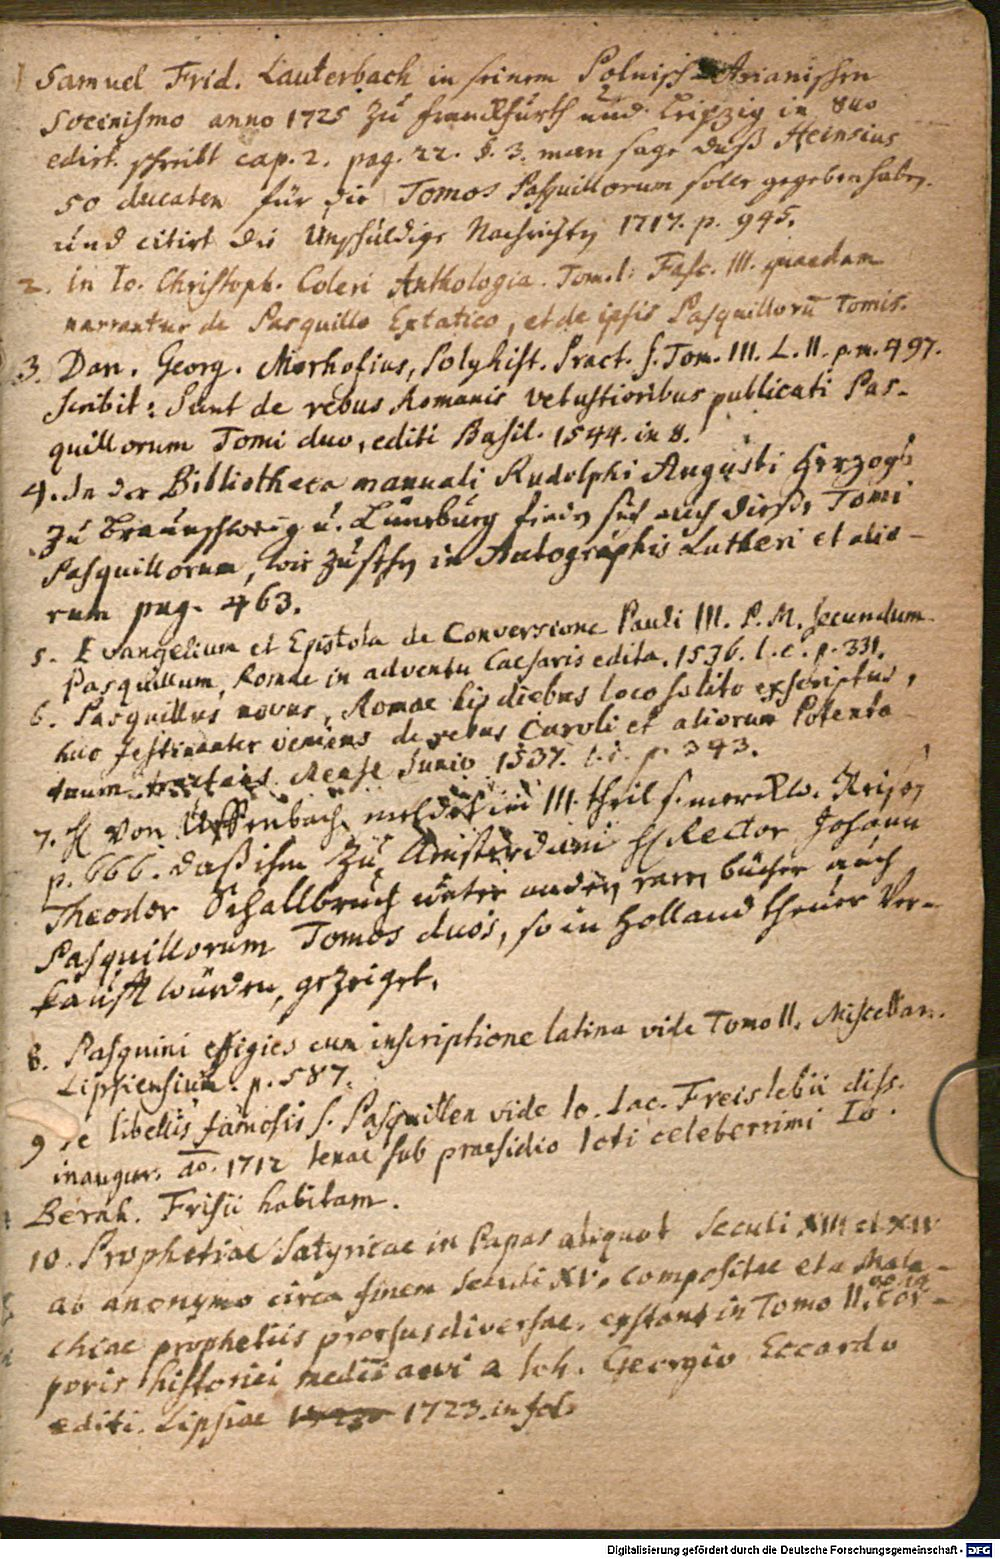 1 Samuel Frid. Lauterbach in seinem Polnisch Arianischen
Socinismo anno 1725 zu Franckfurth und Leipzig in 8vo
edirt. schreibt cap. 2. pag. 22. §. 3. man sage daß Heinsius
50 ducaten für die Tomos Pasquillorum solle gegeben haben.
und citirt die Unschuldige Nachrichten 1717. p. 945.
2. in Io. Christoph. Coleri Anthologia. Tom. I. Fasc. III. quaedam
narrantur de Pasquillo Extatico, et de ipsis Pasquilloru Tomis.
3. Dan. Georg. Morhofius, Polyhist. Pract. s. Tom. III. L. II. p. m. 497.
scribit: Sunt de rebus Romanis vetustioribus publicati Pas-
quillorum Tomi duo, editi Basil. 1544. in 8.
4. In der Bibliotheca manuali Rudolphi Augusti Herzogs
zu Braunschweig u. Lüneburg finden sich auch diese Tomi
Pasquillorum, wie zu sehen in Autographis Lutheri et alio-
rum pag. 463.
5. Evangelium et Epistola de Conversione Pauli III. P. M. secundum
Pasquillum, Romae in adventu Caesaris edita. 1536. l. c. p. 331.
6. Pasquillus novus, Romae his diebus loco solito exscriptus,
huc festinanter veniens de rebus Caroli et aliorum Potenta-
tuum tractans. Mense Junio 1537. l. c. p. 343.
7. H von Uffenbach meldet im III. theil s. merckw. Reisen
p. 666. daß ihm zu Amsterdam H Rector Johann
Theodor Schallbruch unter andern raren bücher auch
Pasquillorum Tomos duos, so in Holland theuer ver-
kaufft würden, gezeiget.
8. Pasquini effigies cum inscriptione latina vide Tomo II. Miscellan.
Lipsiensium. p. 587.
9 de libellis famosis s. Pasquillen vide Io. Iac. Freislebii diss.
inaugur. ao. 1712 Ienae sub praesidio Icti celeberrimi Io.
Bernh. Frisii habitam.
10. Prophetiae Satyricae in Papas aliquot Seculi XIII et XIV
ab anonymo circa finem Seculi XV. compositae et a Mala-
chiae prophetiis prorsus diversae. exstant in Tomo II. Cor-
poris historici medii aevi a Joh. Georgio Eccardo
editi. Lipsiae 1723. in fol.
Digitalisierung gefördert durch die Deutsche Forschungsgemeinschaft - DFG